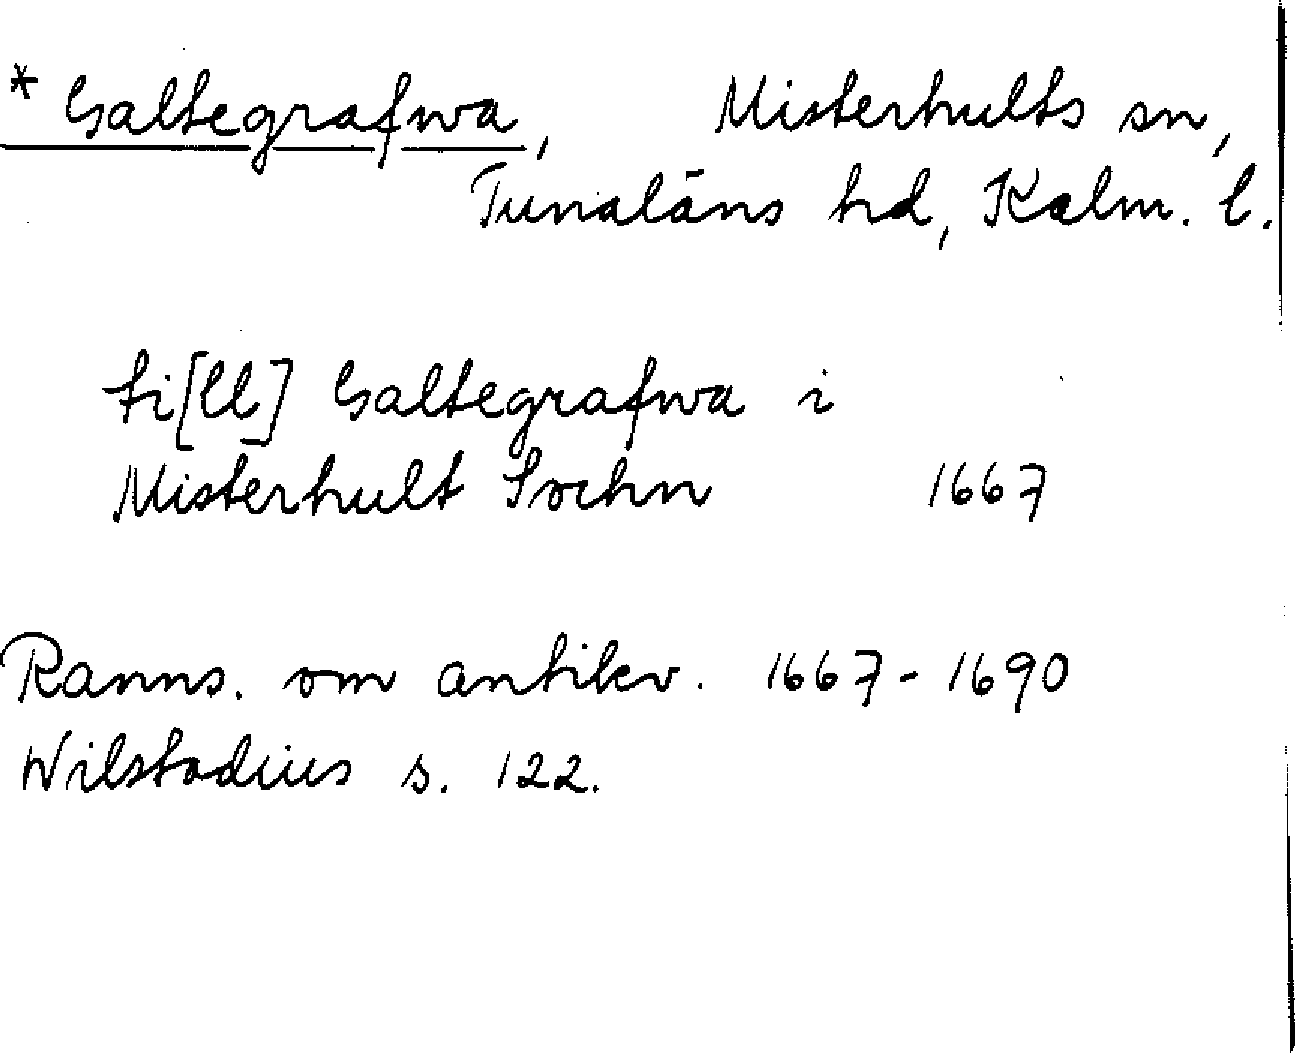 * Galtegrafwa, Misterhults sn,
Tunaläns hd, Kalm. l.
ti[ll] Galtegrafwa i
Misterhult Sochn 1667
Ranns. om antikv. 1667-1690
Wilstadius s. 122.